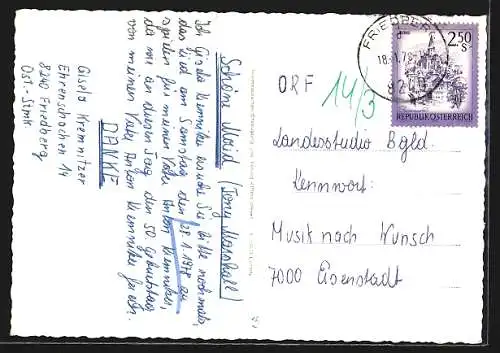 Schöne Maid (Tony Marshall)
Ich Gisela Kremnitzer ersuche Sie bitte nochmals,
das Lied am Samstag den 28.1.1978 zu
spielen für meinen Vater Anton Kremnitzer,
da wir an diesen Tag den 50. Geburtstag
von meinen Vater Anton Kremnitzer feiern.
DANKE
Gisela Kremnitzer
Ehrenschachen 14
8240 Friedberg
Ost.-Stmk
ORF
14/3
Landesstudio Bgld.
Kennwort:
Musik nach Wunsch
7000 Eisenstadt
FRIEDBERG
18.-1.78-
2.50
S
REPUBLIK ÖSTERREICH